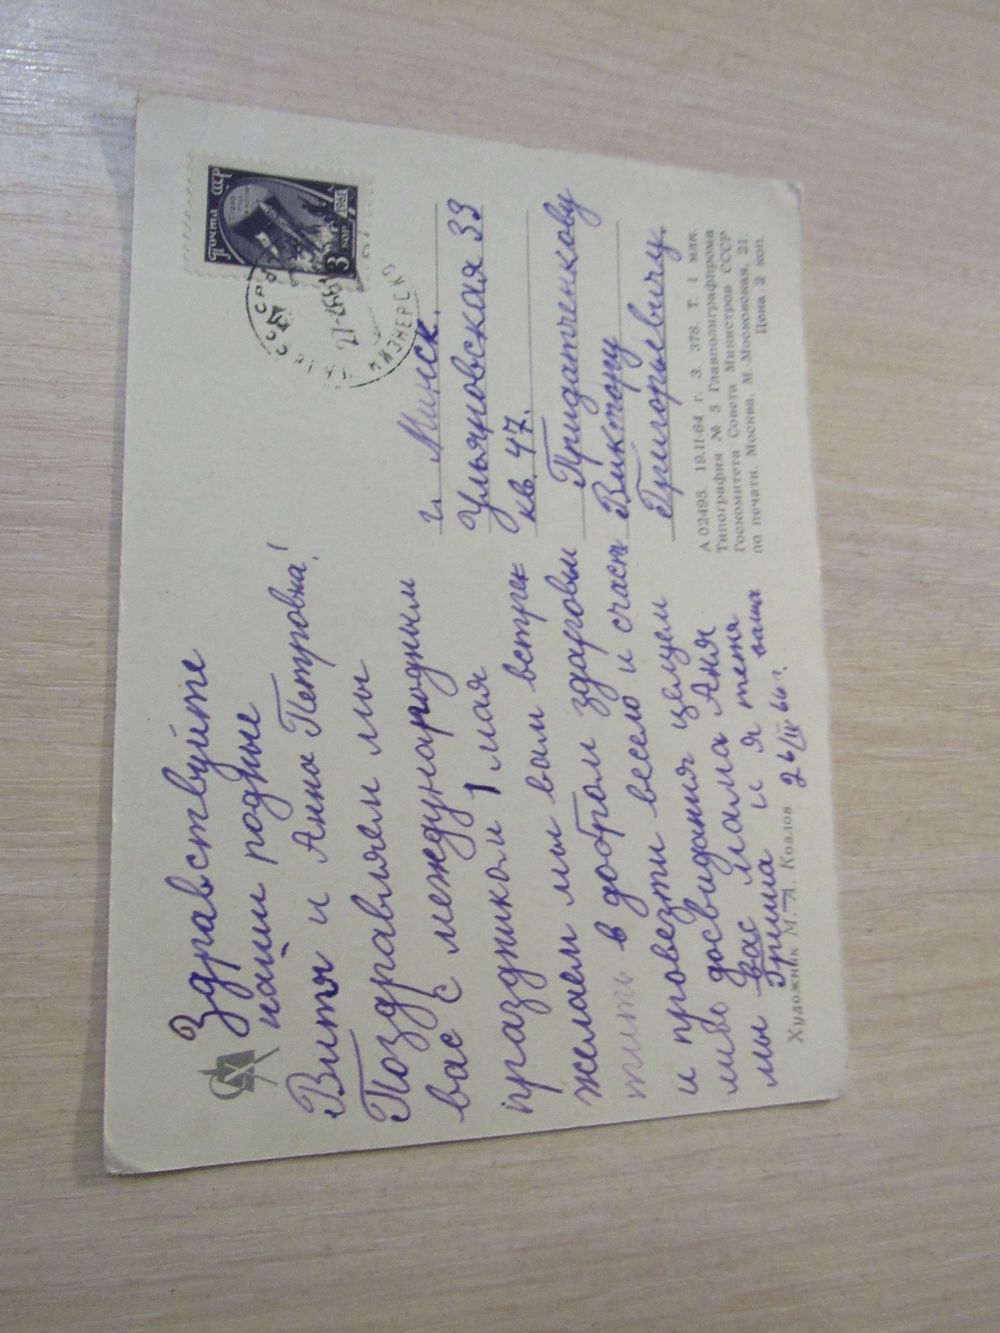 Здравствуйте
наши родные
Витя и Анна Петровна!
Поздравляем мы
вас с международным
праздником 1 мая
желаем мы вам встрет
тить в добром здоровьи
и провезти весело и счаст
ливо досвидания целуем
мы вас мама Аня
Гриша и я тетя
наша
26/IV 66 г.
Художник М. Л. Козлов
Почта СССР
3 коп.
1961
СССР
27-4 66
г. Минск.
Ульяновская 33
кв. 47.
Придатченкову
Виктору
Григорьевичу.
А 02495. 19.II-64 г. З. 378. Т. 1 млн.
Типография № 5 Главполиграфпрома
Госкомитета Совета Министров СССР
по печати. Москва, М.-Московская, 21.
Цена 2 коп.